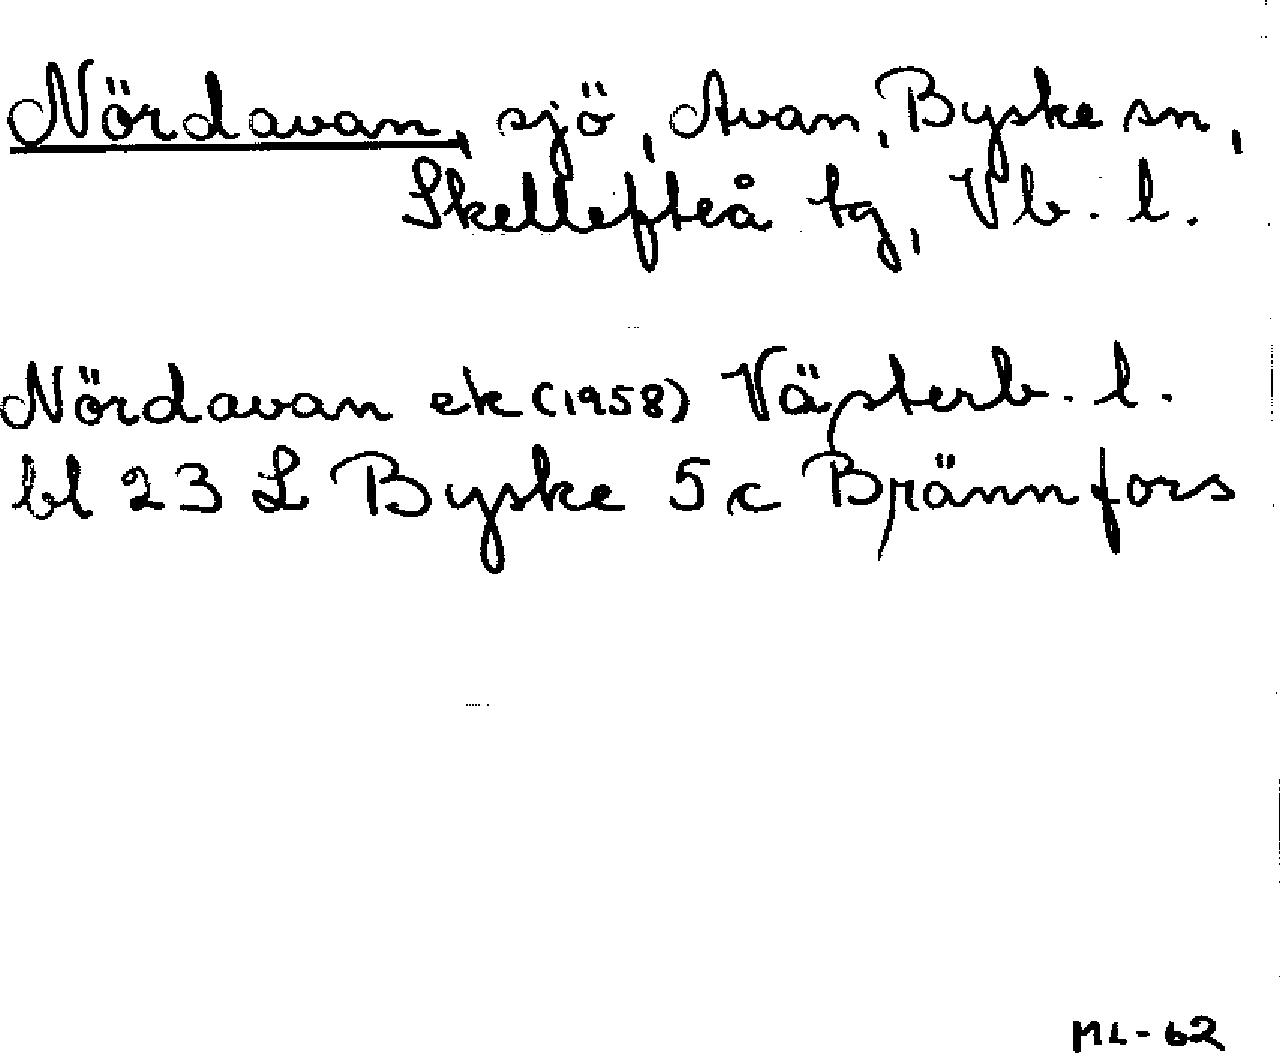 Nördavan, sjö, Avan, Byske sn,
Skellefteå tg, Vb. l.
Nördavan ek (1958) Västerb. l.
bl 23 L Byske 5 c Brännfors
ML-62